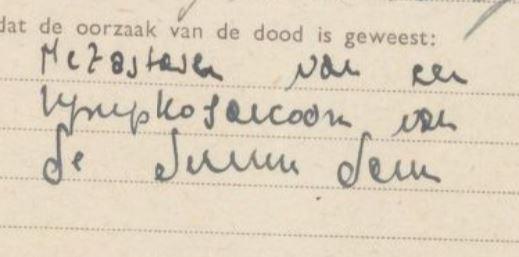 dat de oorzaak van de dood is geweest:
Metastasen van een
lymphosarcoom van
de dunne darm